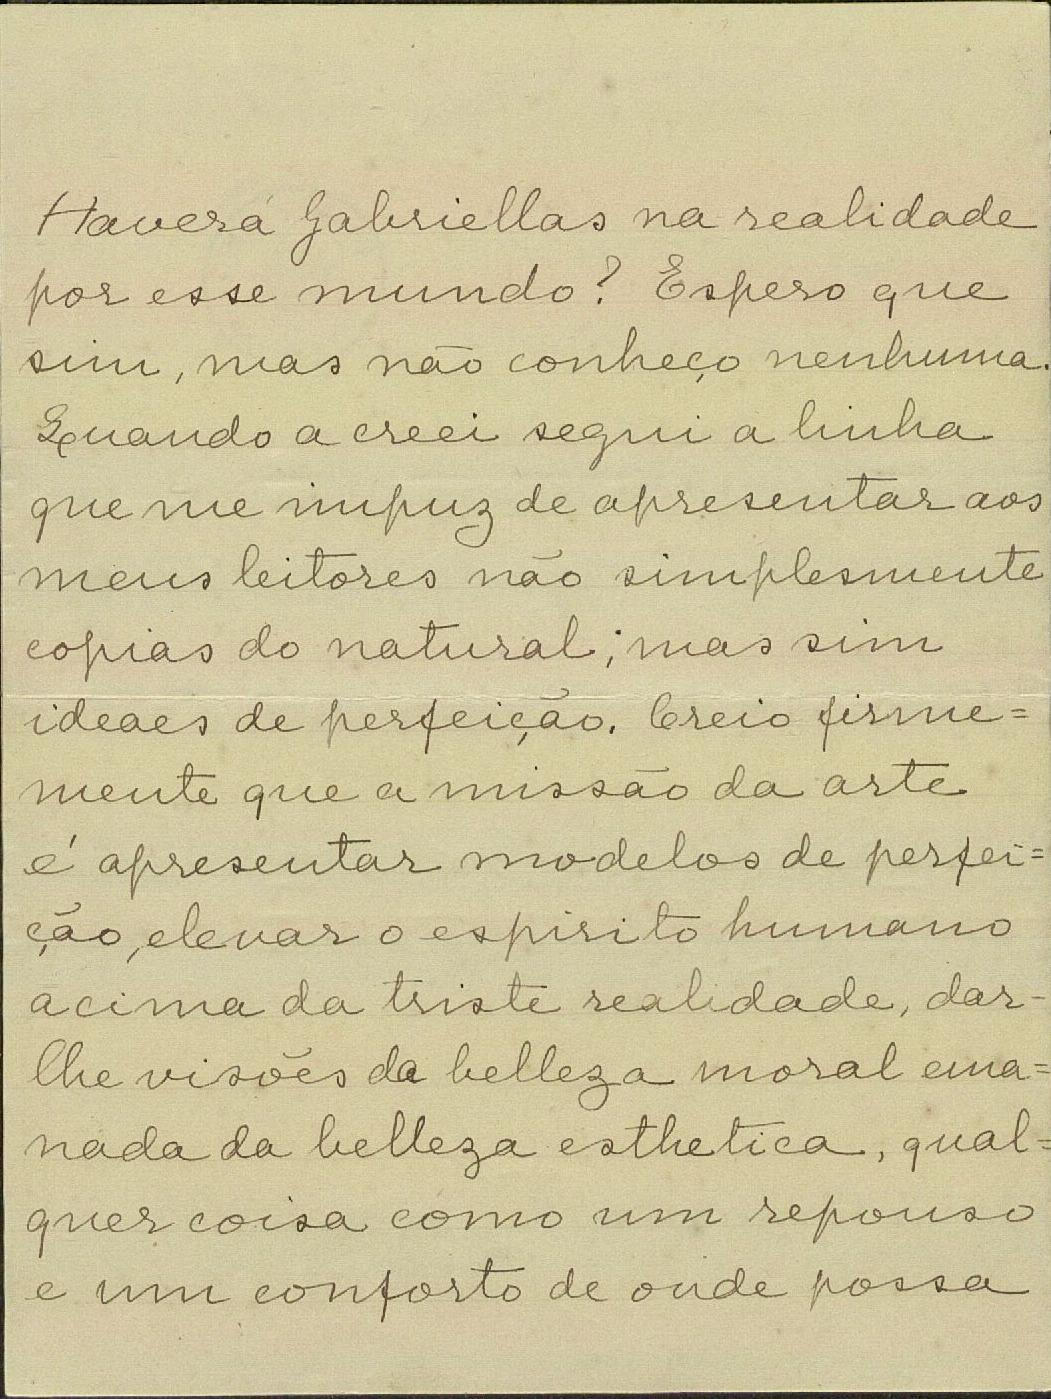 Haverá Gabriellas na realidade
por esse mundo? Espero que
sim, mas não conheço nenhuma.
Quando a creei segui a linha
que me impuz de apresentar aos
meus leitores não simplesmente
copias do natural; mas sim
ideaes de perfeição. Creio firme=
mente que a missão da arte
é apresentar modelos de perfei=
ção, elevar o espirito humano
acima da triste realidade, dar-
lhe visões da belleza moral ema=
nada da belleza esthetica, qual=
quer coisa como um repouso
e um conforto de onde possa